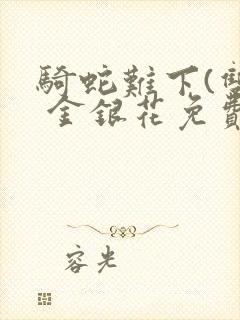 騎蛇難下(雙
金銀花免費
容光